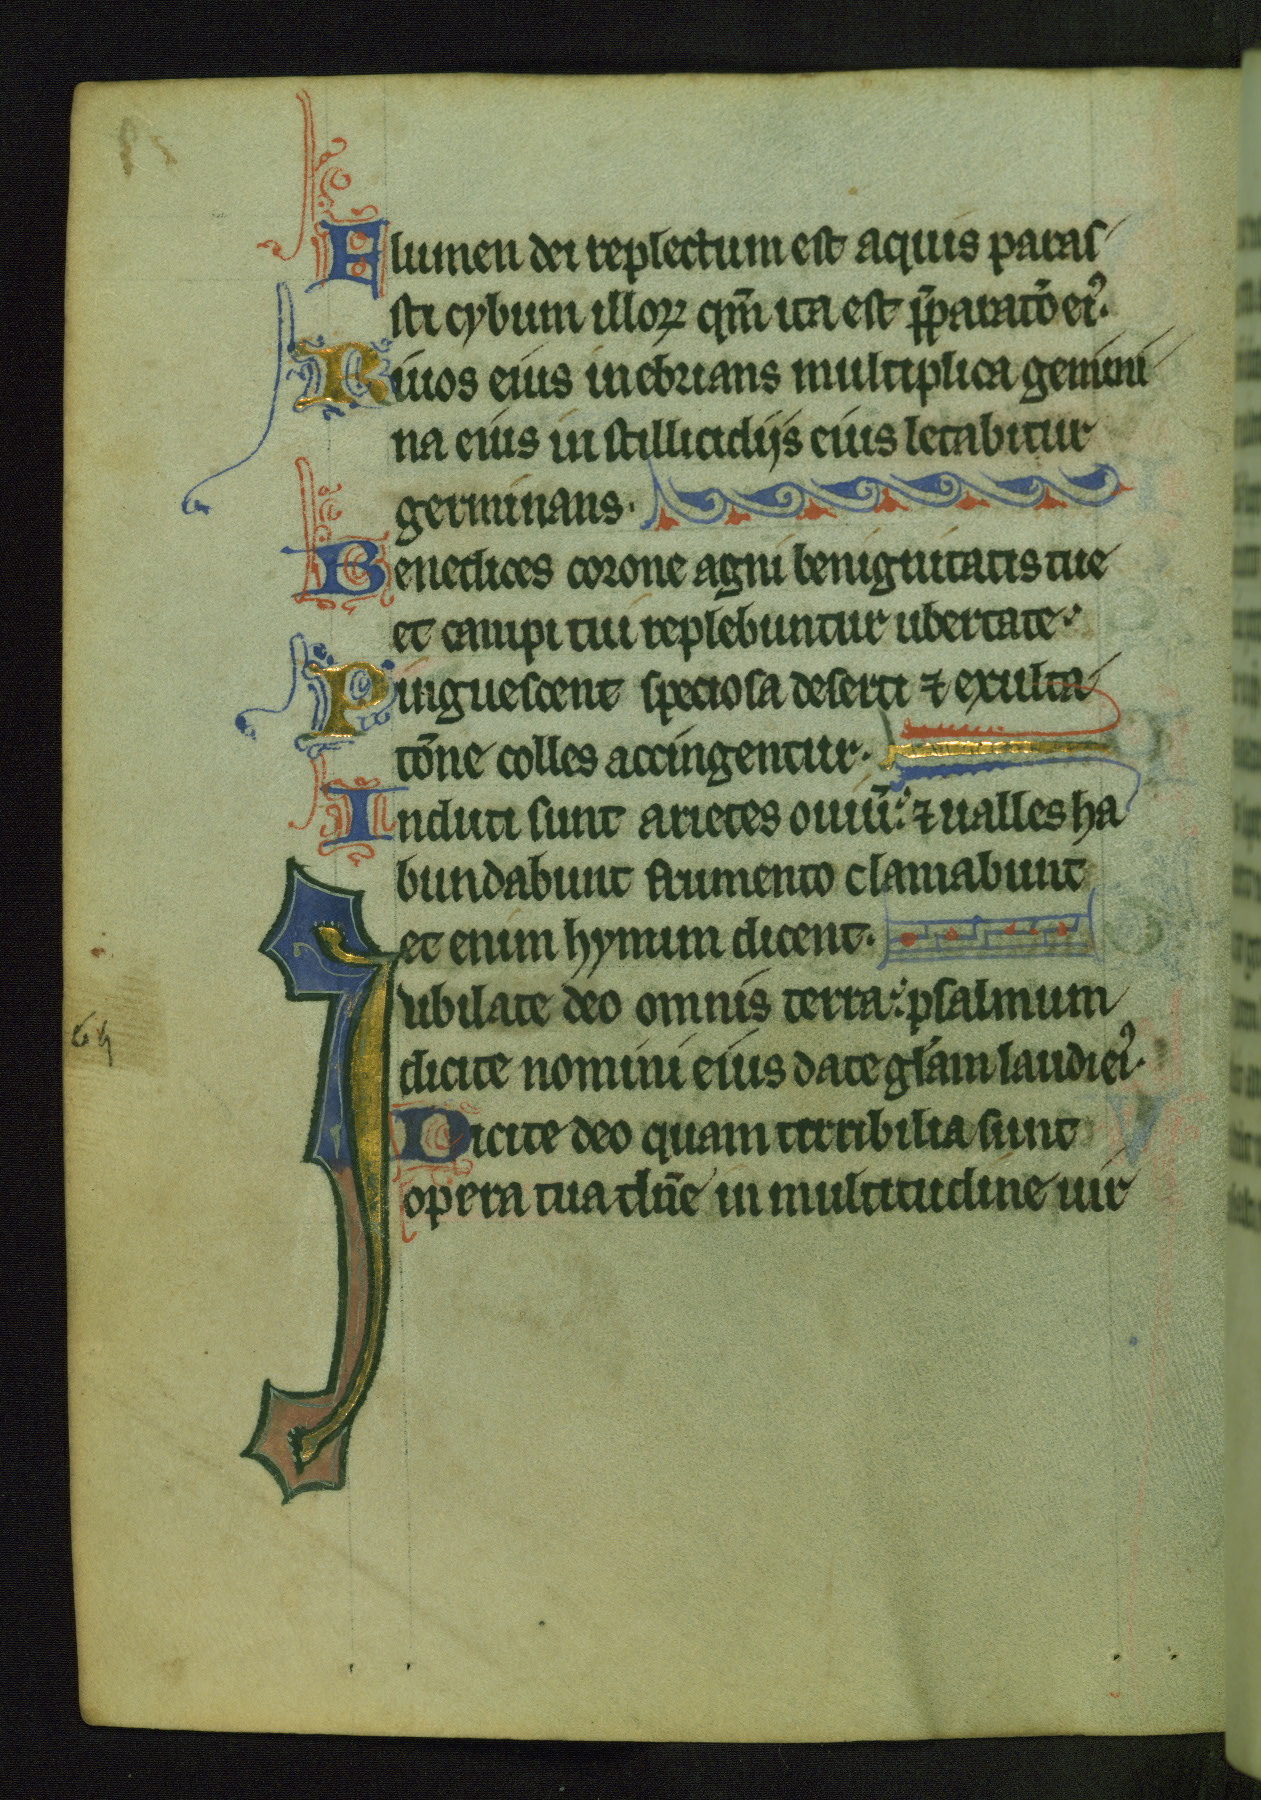 Elumen dei replectum est aquis paras
sti cybum illoꝝ qm̄ ita est p̄paratō ei᾽.
Riuos eius inebrians multiplica gemini
na eius in stillicidijs eius letabitur
germinans.
Benedices corone agni benignitatis tue
et campi tui replebuntur ubertate
Pinguescent speciosa deserti ⁊ exulta
tōne colles accingentur.
Induti sunt arietes ouiū: ⁊ ualles ha
bundabunt frumento clamabunt
et enim hymim dicent.
Jubilate deo omnis terra: psalmum
dicite nomini eius date gl̄am laudi ei᾽.
Dicite deo quam terribilia sunt
opera tua dn̄e in multitudine uir